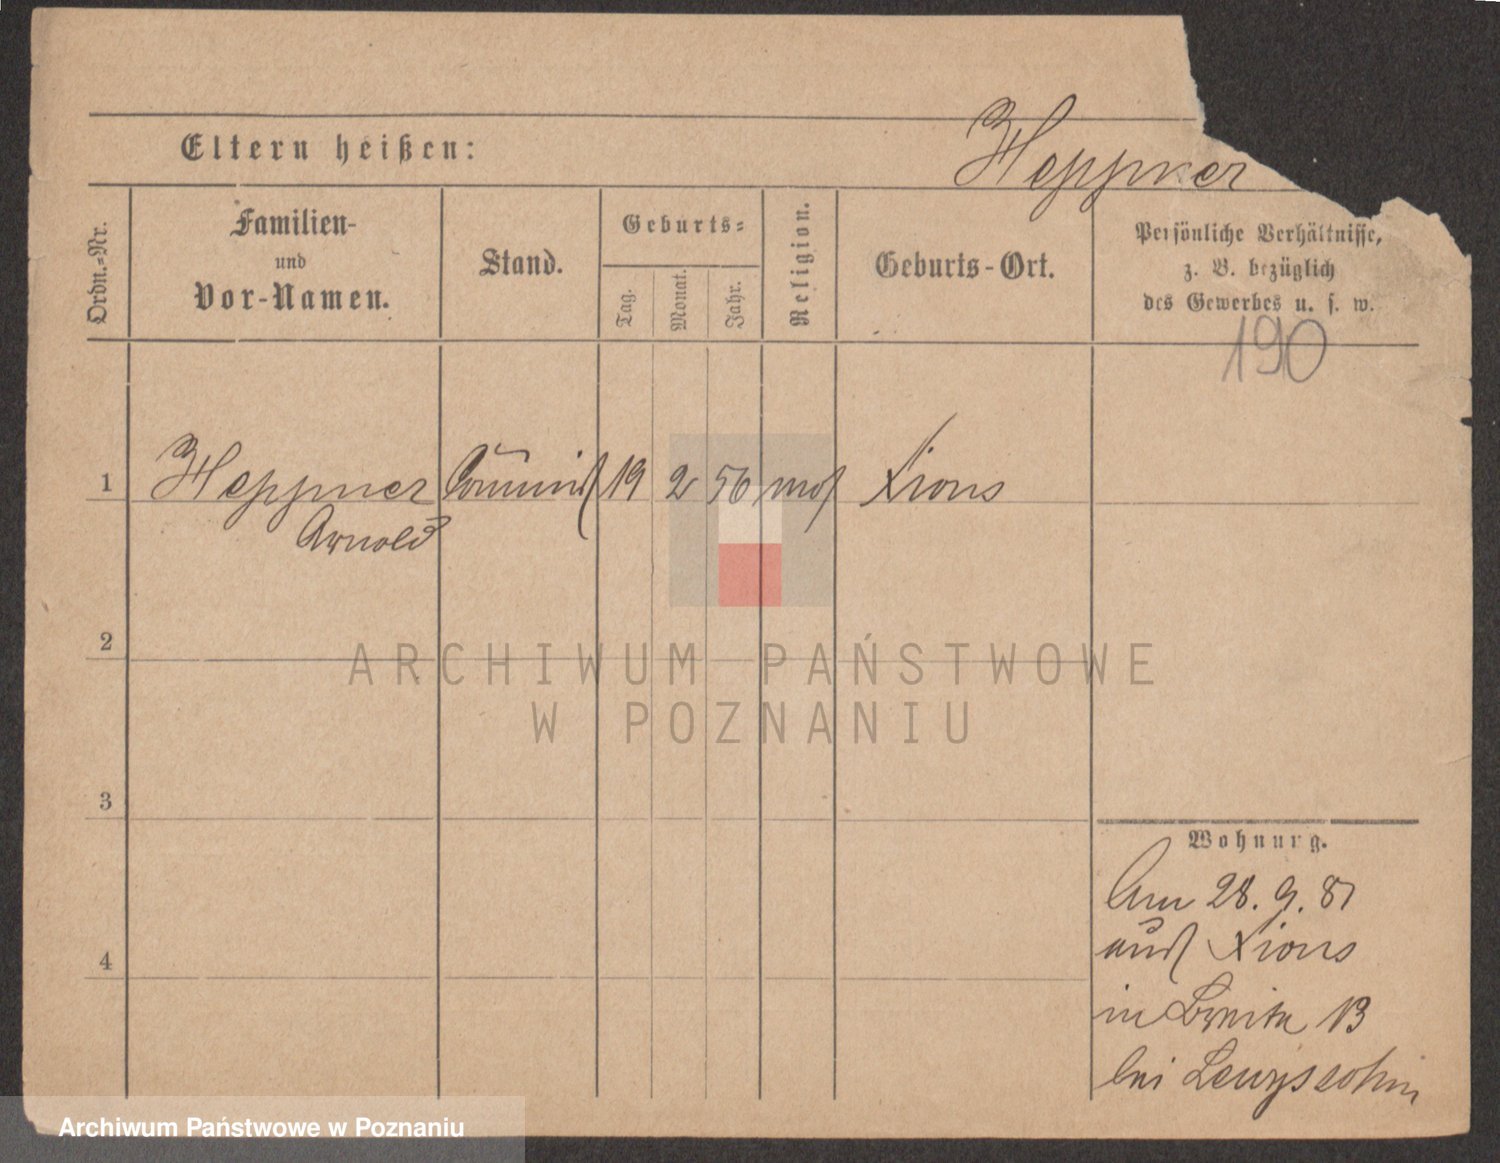 Eltern heißen:
Heppner
Ordn.-Nr.
Familien-
und
Vor-Namen.
Stand.
Geburts-
Tag.
Monat.
Jahr.
Religion.
Geburts-Ort.
Persönliche Verhältnisse,
z. B. bezüglich
des Gewerbes u. s. w.
190
1 Heppner Commis 19 2 56 mos Xions
Arnold
2
3
4
Wohnung.
Am 28. 9. 81
aus Xions
in Breite 13
bei Lewyssohn
ARCHIWUM PAŃSTWOWE
W POZNANIU
Archiwum Państwowe w Poznaniu